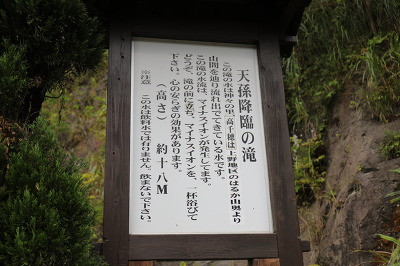 天孫降臨の滝
この滝の水は神々の里、高千穂は、上野地区のはるか山奥より
山間を辿り流れ出てできている水です。
この滝の水流は、マイナスイオンが発生してます。
どうぞ、滝の前に立ち、マイナスイオンを、一杯浴びて
下さい。心の安らぎの効果があります。
(高さ) 約十八M
※注意 この水は飲料水では有りません。飲まないで下さい。